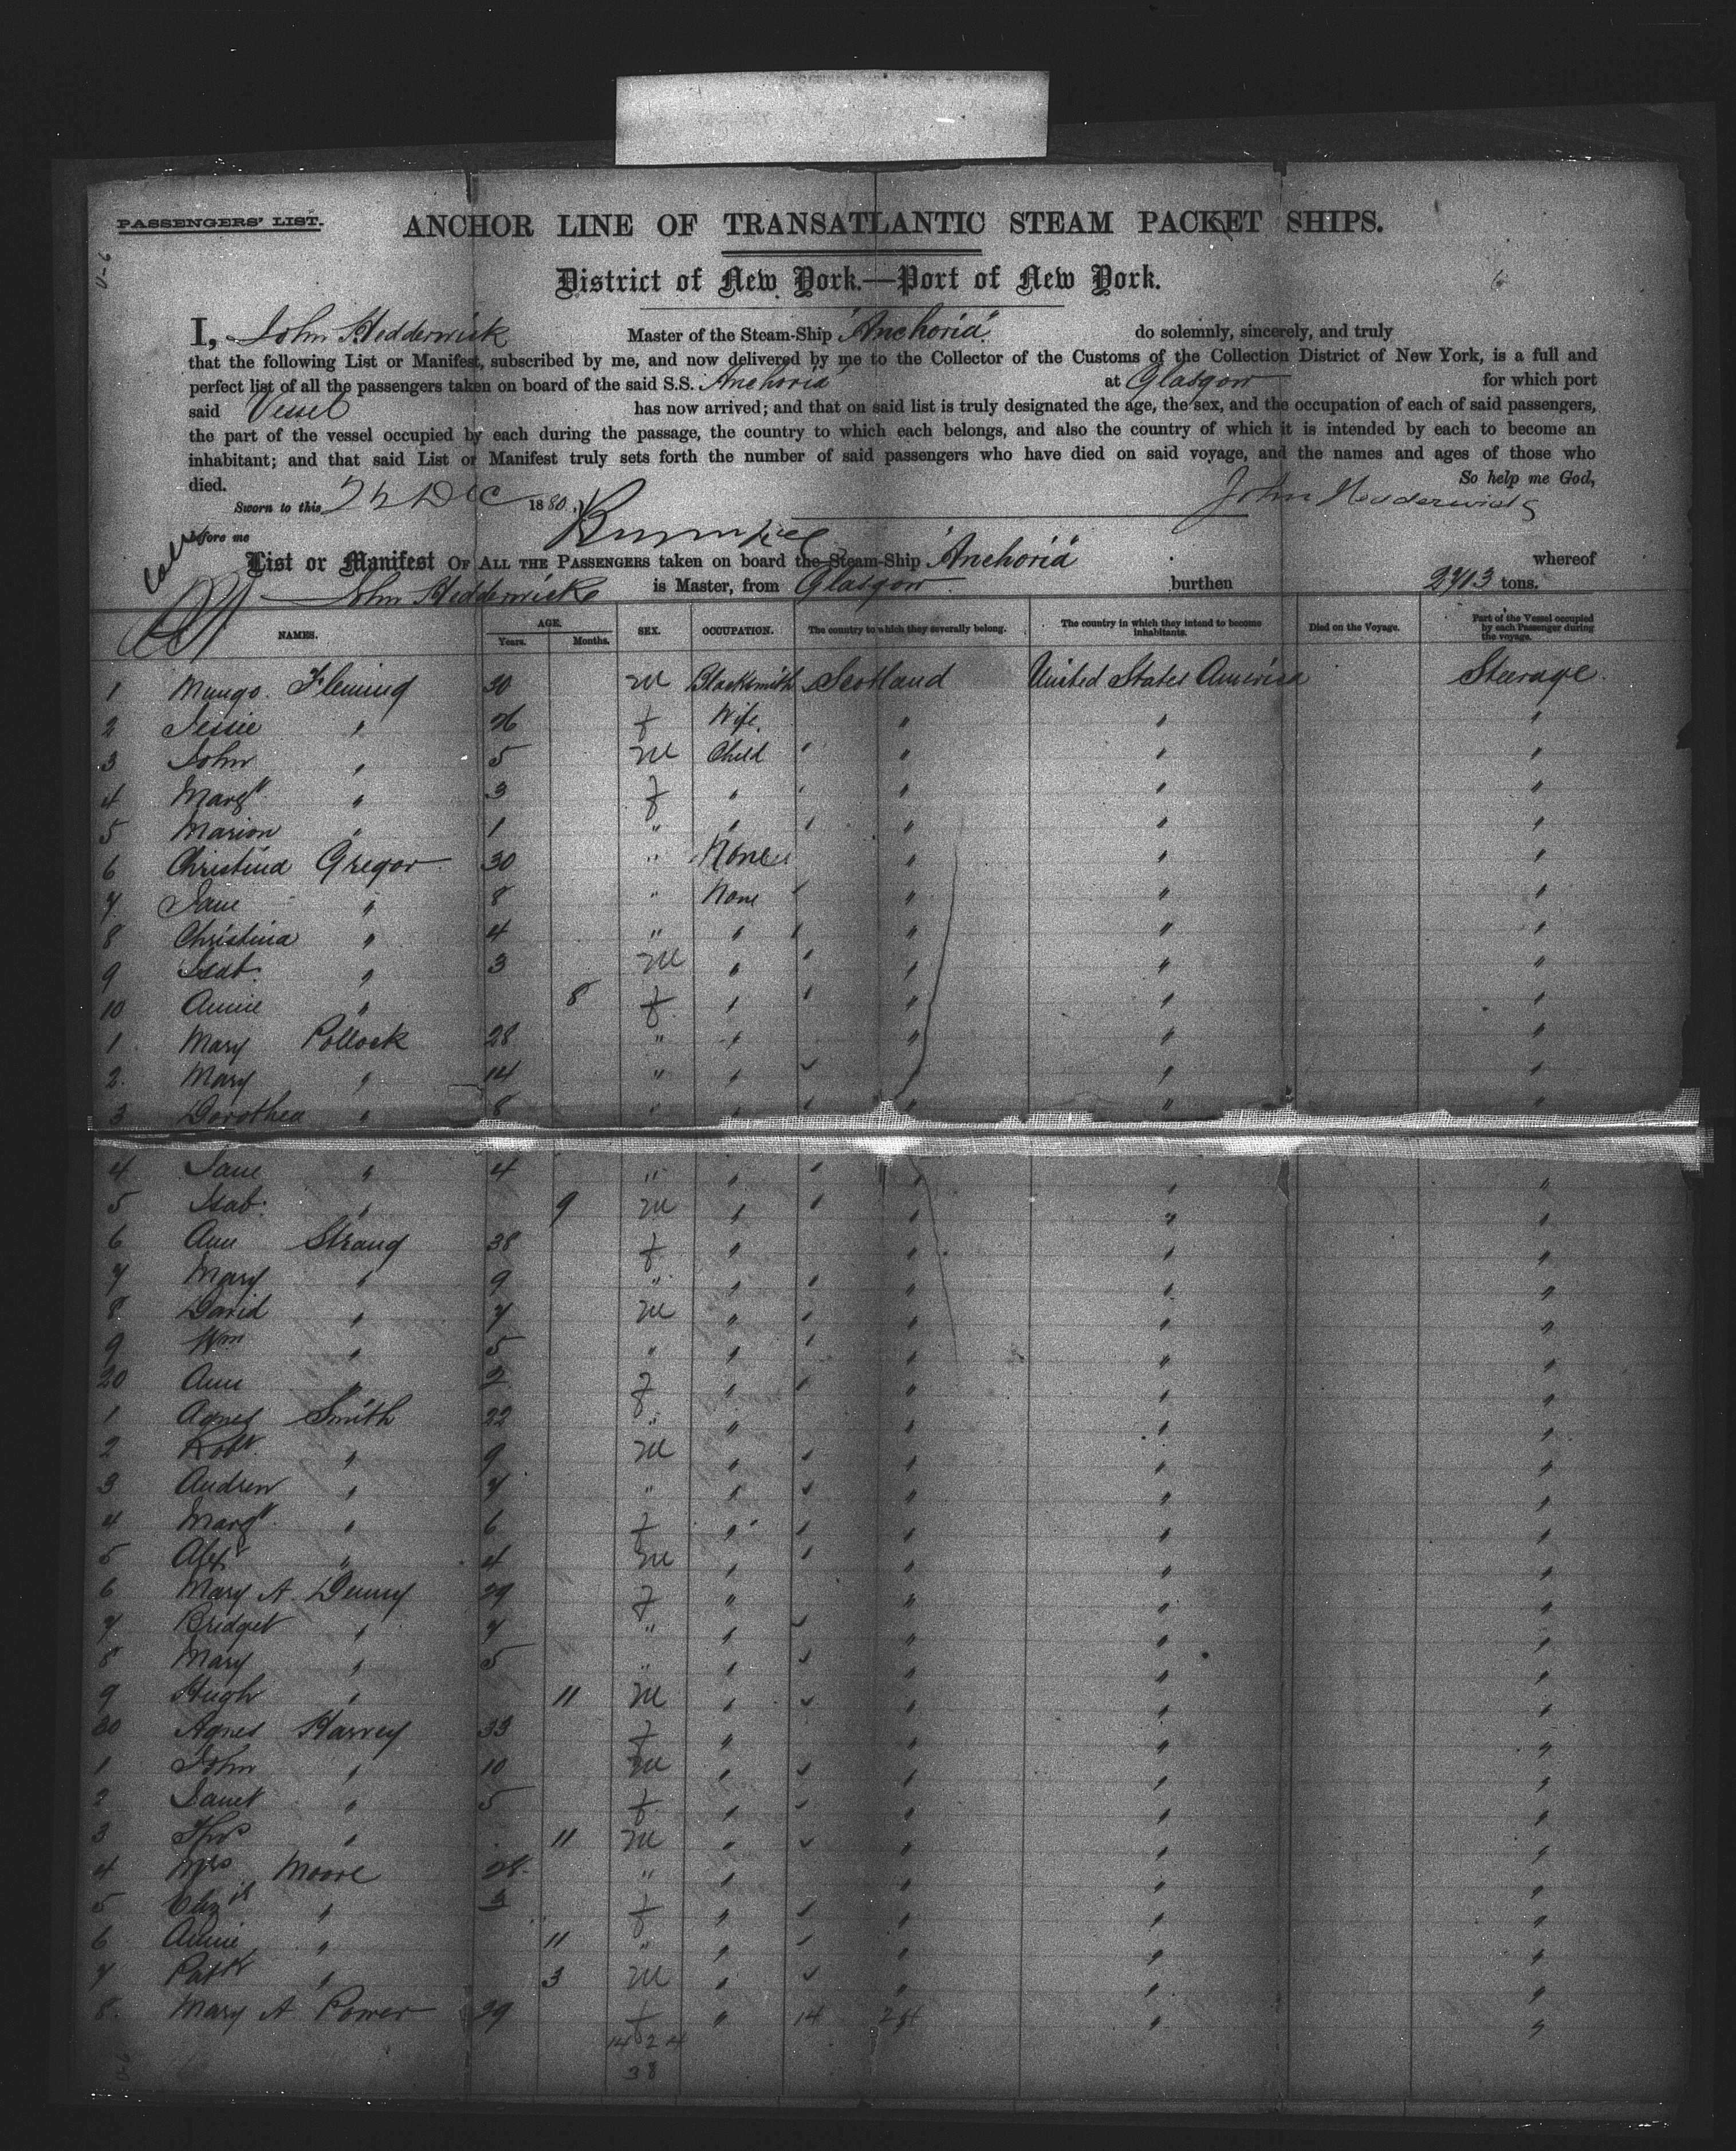 PASSENGERS' LIST.
ANCHOR LINE OF TRANSATLANTIC STEAM PACKET SHIPS.
District of New York.—Port of New York.
6
I, John Hedderwick Master of the Steam-Ship "Anchoria" do solemnly, sincerely, and truly
that the following List or Manifest, subscribed by me, and now delivered by me to the Collector of the Customs of the Collection District of New York, is a full and
perfect list of all the passengers taken on board of the said S.S. Anchoria at Glasgow for which port
said Vessel has now arrived; and that on said list is truly designated the age, the sex, and the occupation of each of said passengers,
the part of the vessel occupied by each during the passage, the country to which each belongs, and also the country of which it is intended by each to become an
inhabitant; and that said List or Manifest truly sets forth the number of said passengers who have died on said voyage, and the names and ages of those who
died. So help me God,
Sworn to this 22 Dec 1880. John Hedderwick
before me
List or Manifest OF ALL THE PASSENGERS taken on board the Steam-Ship "Anchoria" whereof
John Hedderwick is Master, from Glasgow burthen 2713 tons.
NAMES. AGE. Years. Months. SEX. OCCUPATION. The country to which they severally belong. The country in which they intend to become inhabitants. Died on the Voyage. Part of the Vessel occupied by each Passenger during the voyage.
1 Mungo Fleming 30 M Blacksmith Scotland United States America Steerage
2 Jessie " 26 f Wife " " "
3 John " 5 M Child " " "
4 Margt " 3 f " " " "
5 Marion " 1 " " " " "
6 Christina Gregor 30 " None " " "
7 Jane " 8 " None " " "
8 Christina " 4 " " " " "
9 Isab. " 3 M " " " "
10 Annie " 8 f " " " "
1 Mary Pollock 28 " " " " "
2 Mary " 14 " " " " "
3 Dorothea " 8 " " " " "
4 Jane " 4 " " " " "
5 Isab. " 9 M " " " "
6 Ann Strang 38 f " " " "
7 Mary " 9 " " " " "
8 David " 7 M " " " "
9 Wm " 5 " " " " "
20 Ann " 2 f " " " "
1 Agnes Smith 22 " " " " "
2 Robt. " 9 M " " " "
3 Andrew " 7 " " " " "
4 Margt " 6 f " " " "
5 Alex " 4 M " " " "
6 Mary A Denny 29 f " " " "
7 Bridget " 7 " " " " "
8 Mary " 5 " " " " "
9 Hugh " 11 M " " " "
30 Agnes Harvey 33 f " " " "
1 John " 10 M " " " "
2 Janet " 5 f " " " "
3 Thos " 11 M " " " "
4 Mrs Moore 28 " " " " "
5 Elizth " 3 f " " " "
6 Annie " 11 " " " " "
7 Patk " 3 M " " " "
8 Mary A Power 39 f " 14 24 " "
14 24
38